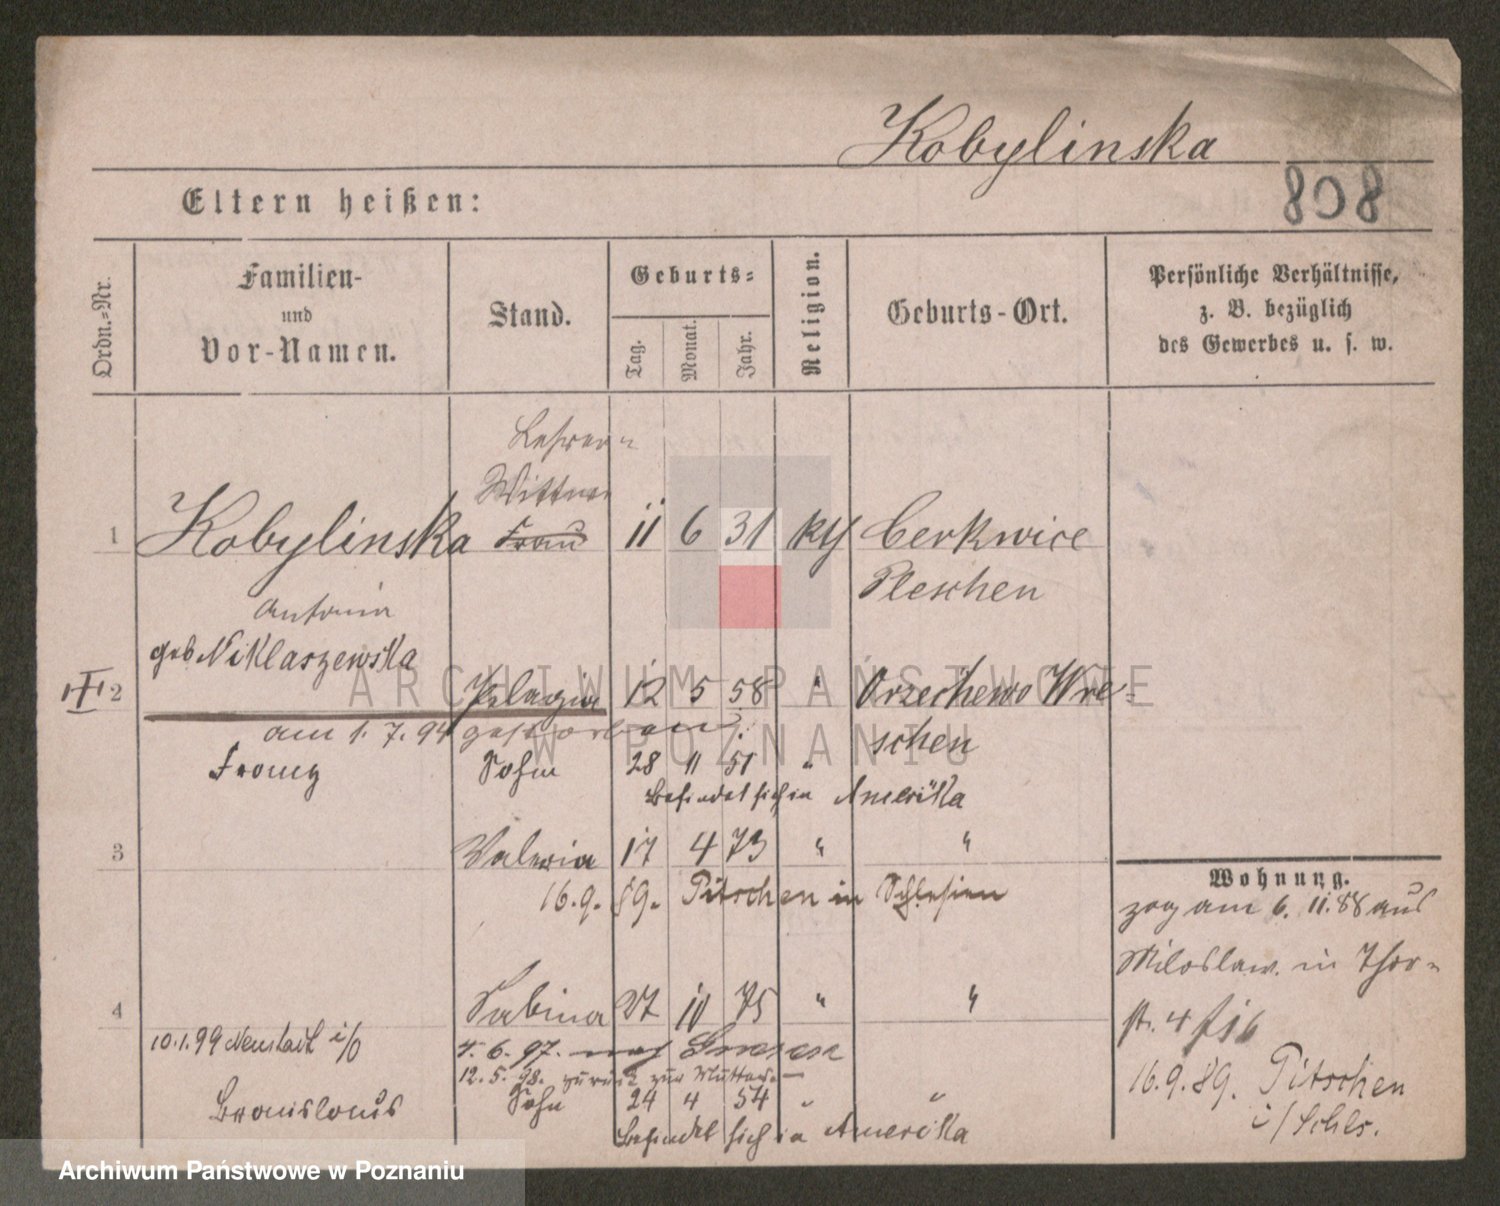 Kobylinska
808
Eltern heißen:
Ordn.=Nr.
Familien-
und
Vor-Namen.
Stand.
Geburts=
Tag.
Monat.
Jahr.
Religion.
Geburts-Ort.
Persönliche Verhältnisse,
z. B. bezüglich
des Gewerbes u. s. w.
Lehrer=
Wittwe
1 Kobylinska Frau 11 6 31 kth Cerkwice
Pleschen
Antonia
geb Niklaszewska
2 Pelagia 12 5 58 " Orzechewo Wre=
schen
am 1. 7. 94 gestorben.
Franz Sohn 28 11 51 "
Befindet sich in Amerika
3 Valeria 17 4 73 " "
16. 9. 89. Pitschen in Schlesien
Wohnung.
zog am 6. 11. 88 aus
Miloslaw. in Thor=
str. 4
16. 9. 89. Pitschen
i/Schles.
4 Sabina 27 10 75 " "
10. 1. 99 Neustadt i/O
4. 6. 97. nach Gnesen
12. 5. 98. zurück zur Mutter.
Bronislaus Sohn 24 4 54 " "
Befindet sich in Amerika
ARCHIWUM PAŃSTWOWE
W POZNANIU
Archiwum Państwowe w Poznaniu